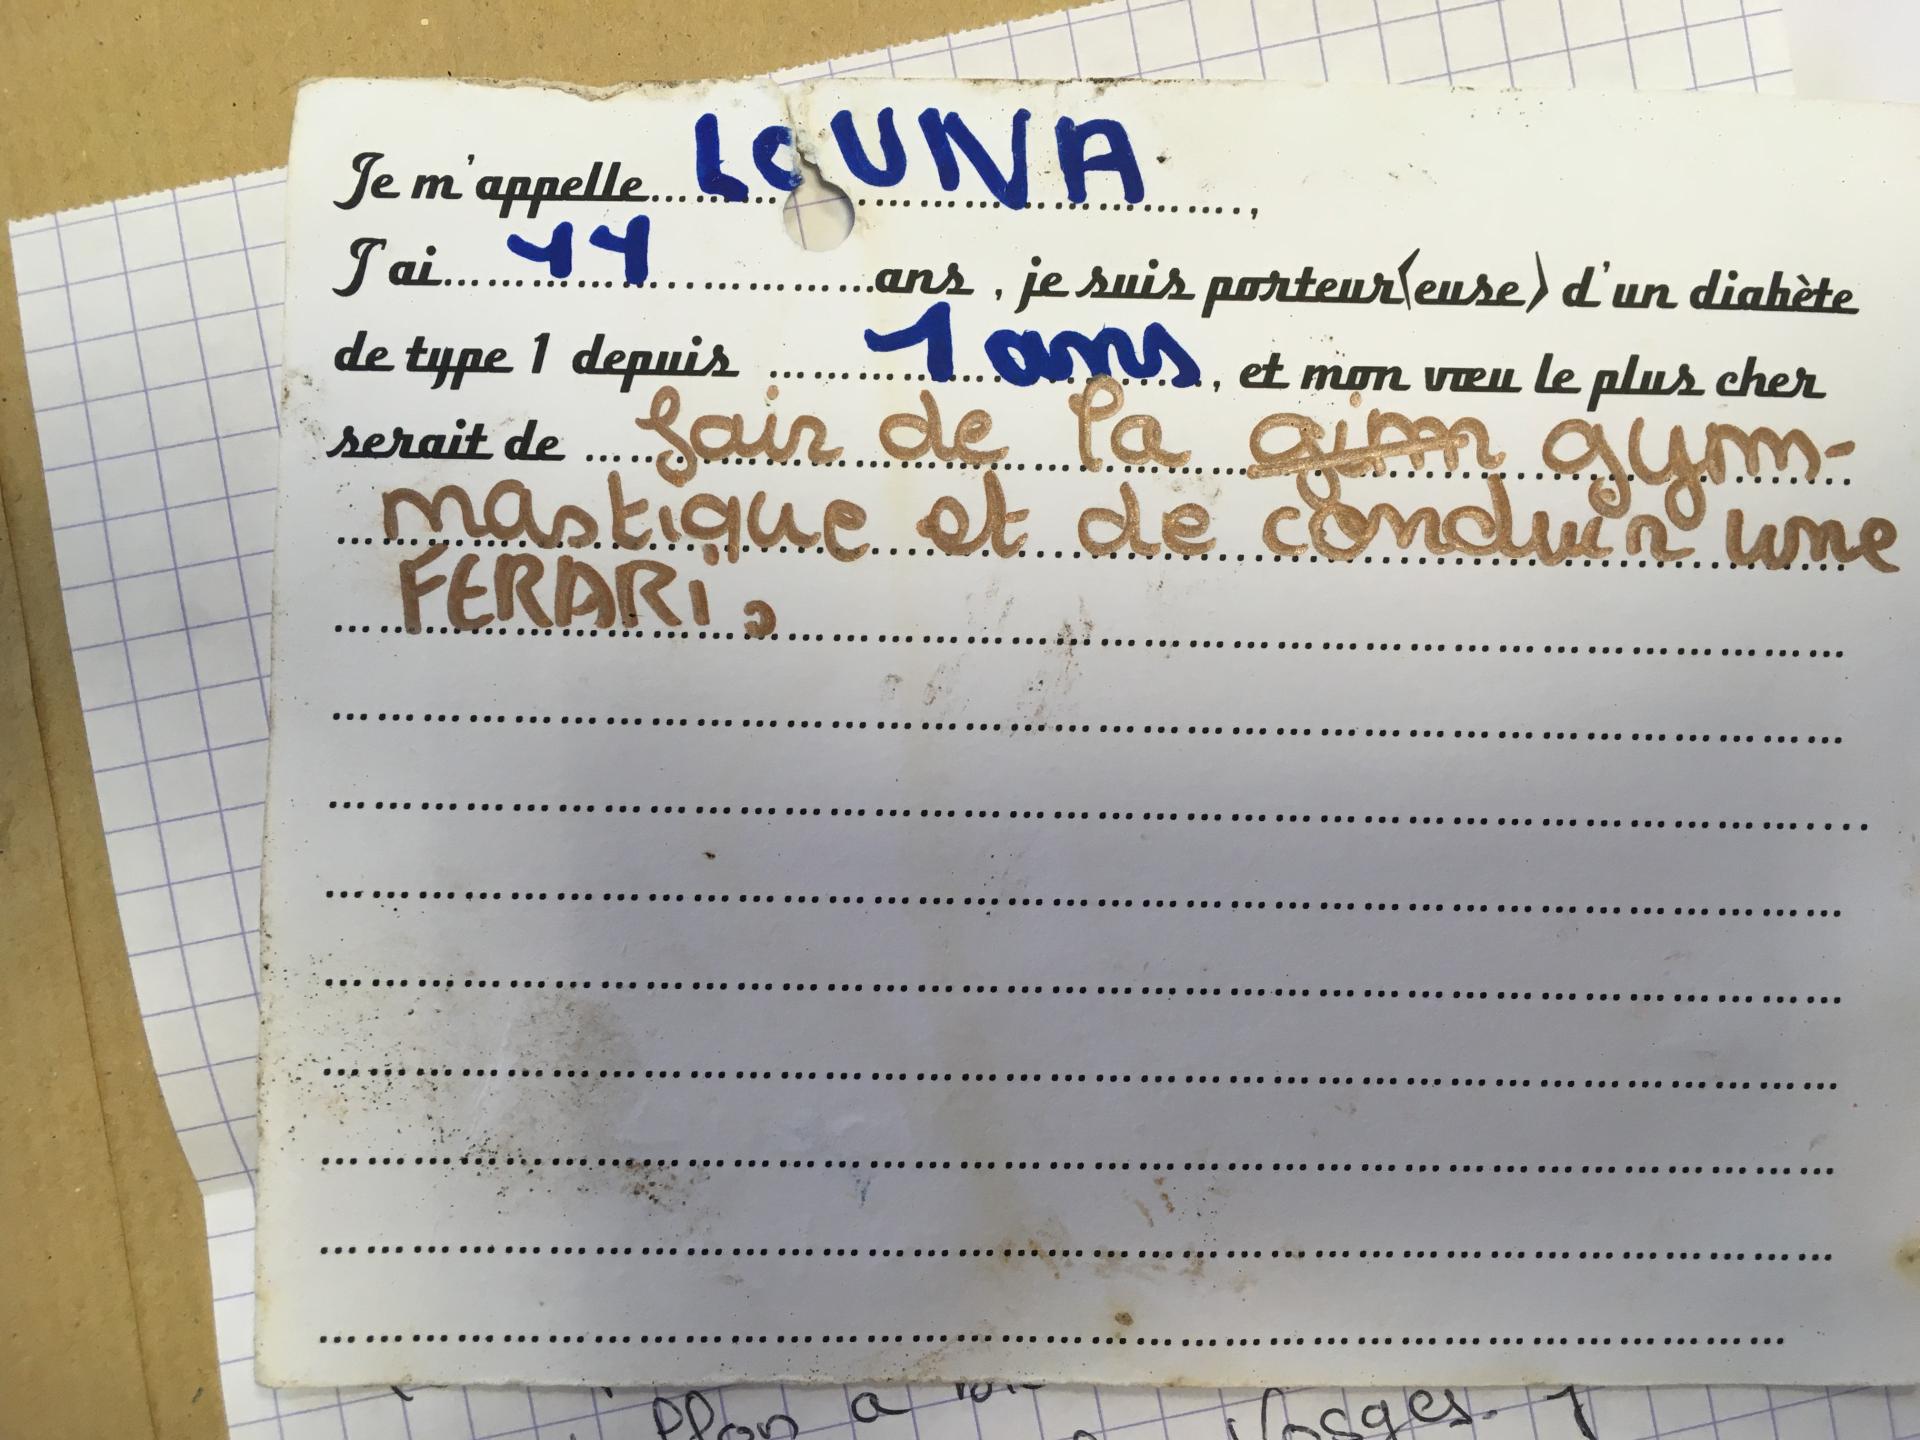 Je m'appelle...LOUNA...,
J'ai...11...ans, je suis porteur(euse) d'un diabète
de type 1 depuis ...1 ans..., et mon vœu le plus cher
serait de ...fair de la gim gym-
nastique et de conduir une
FERARI.
Plan a
Vosges.